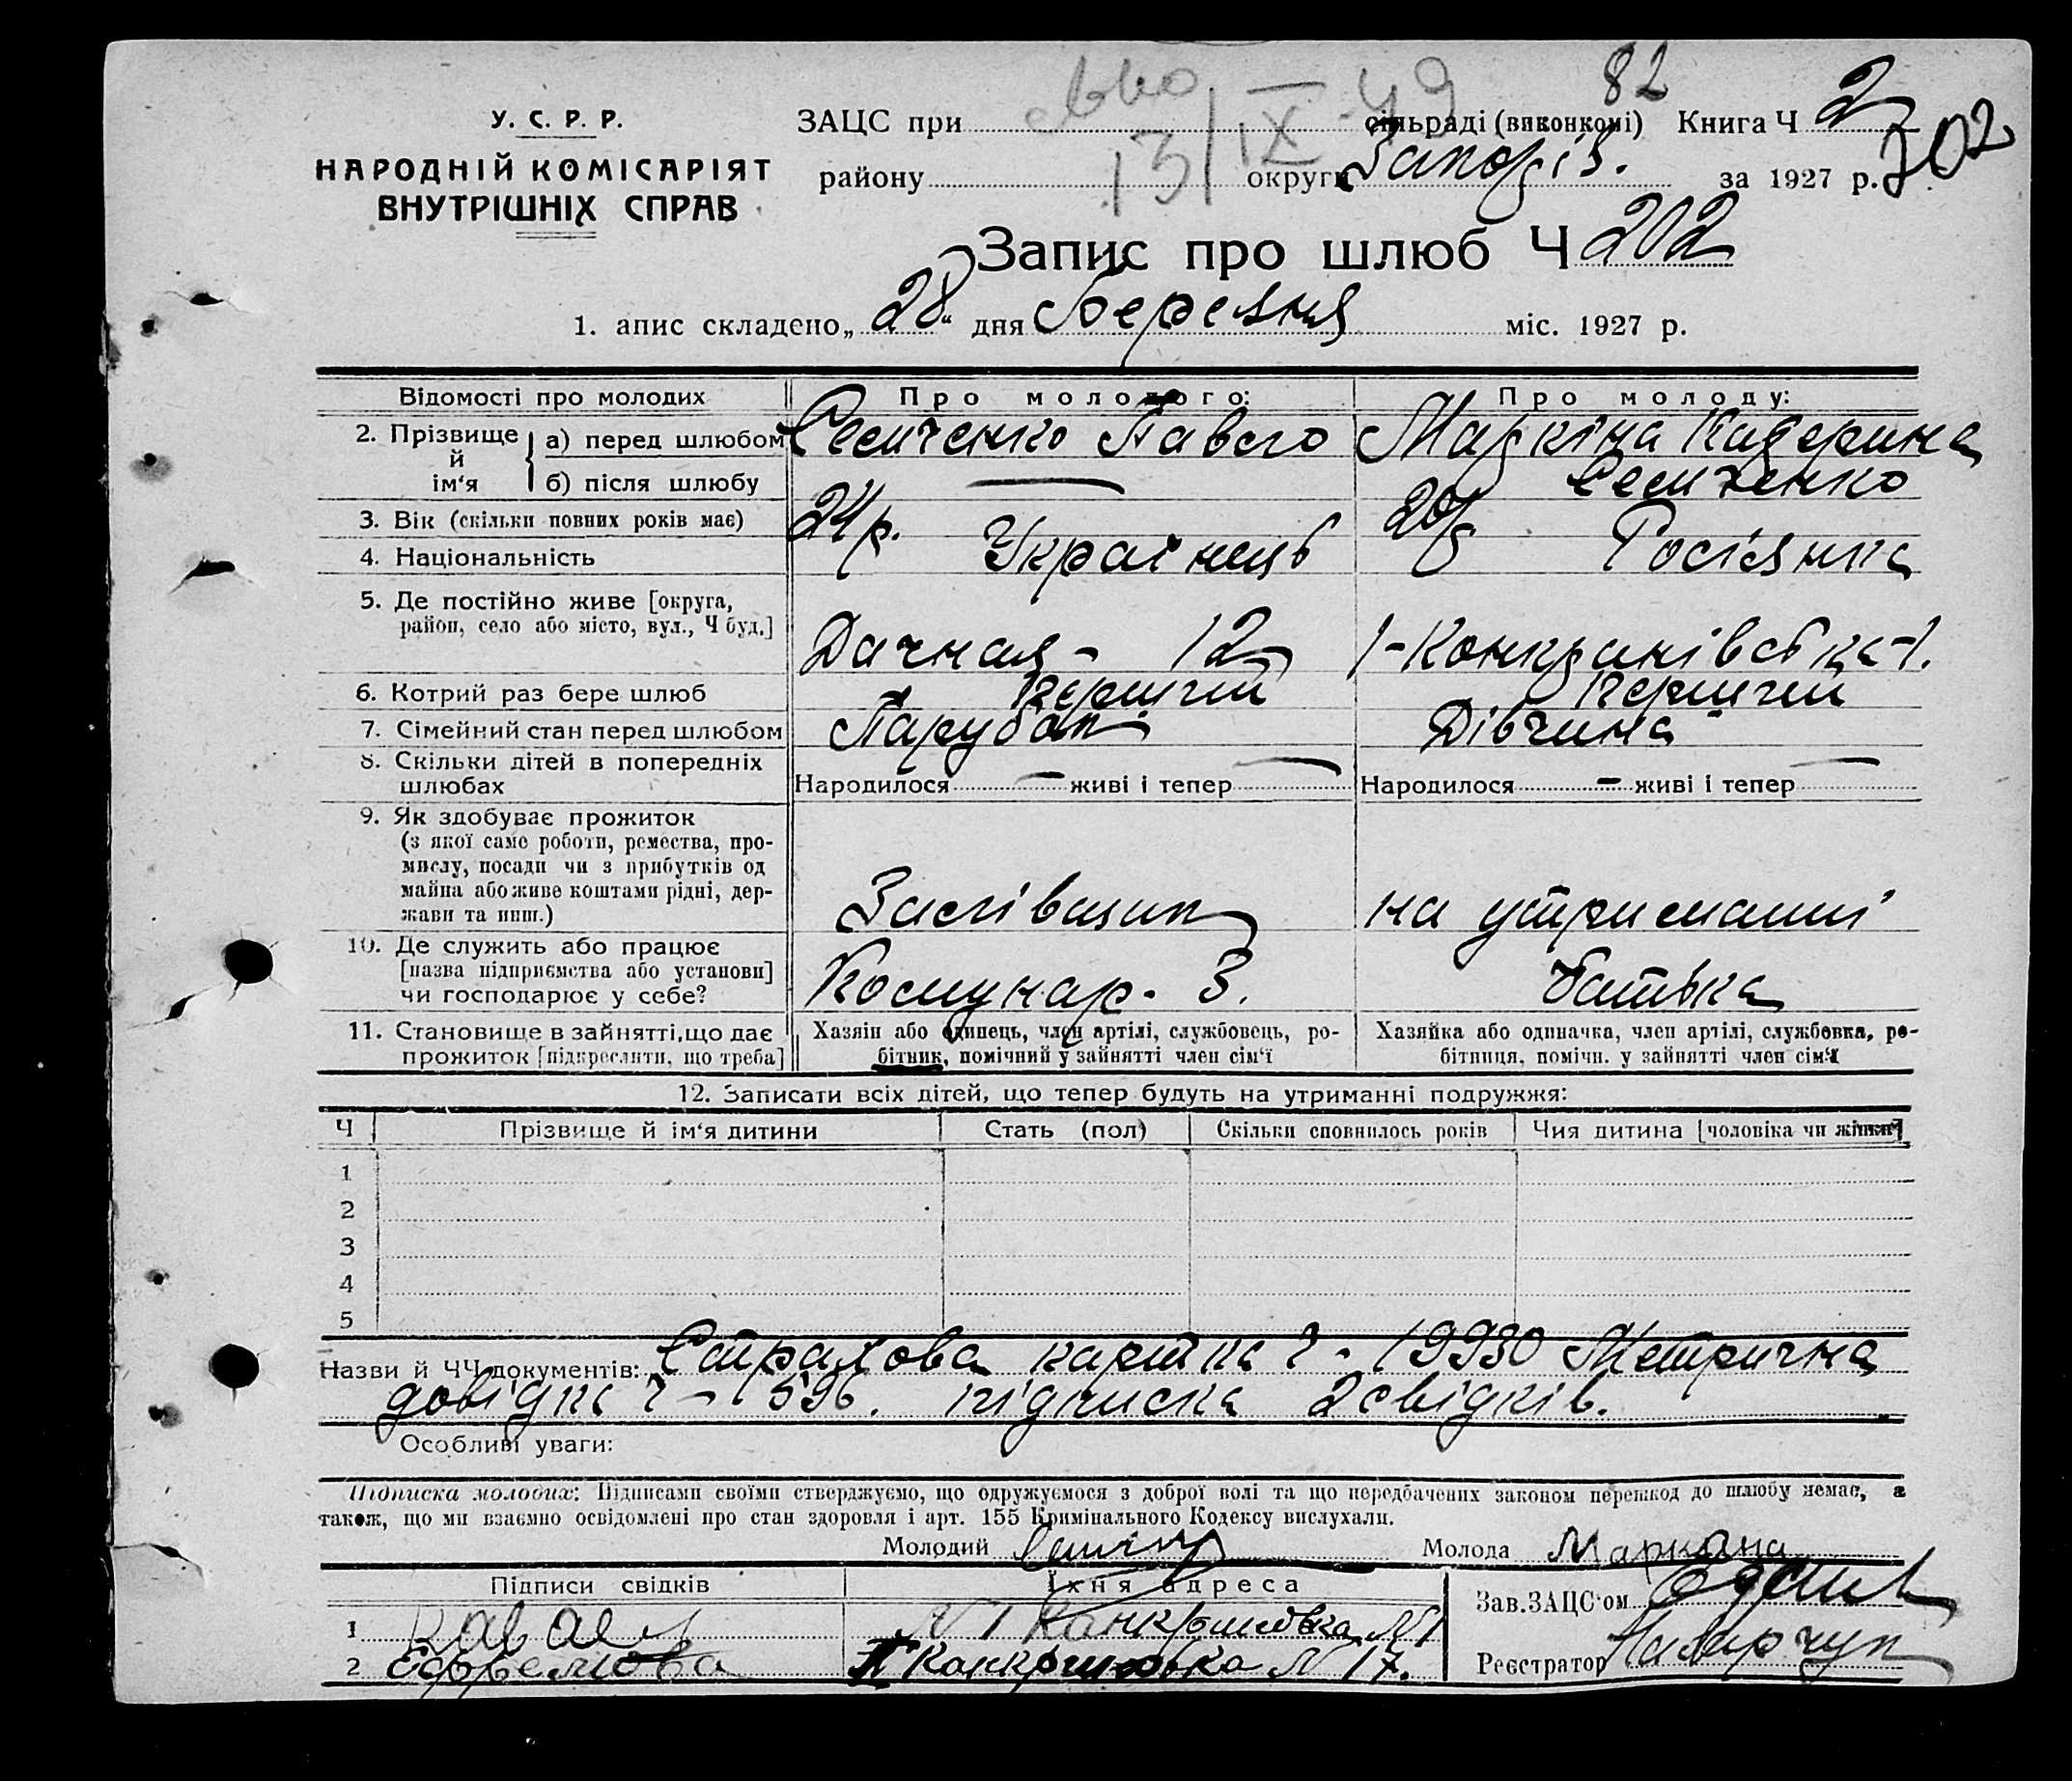 82
У. С. Р. Р.
НАРОДНІЙ КОМІСАРІЯТ
ВНУТРІШНІХ СПРАВ
ЗАЦС при сільраді (виконкомі) Книга Ч 2
13/IX-49
району округи Запоріз. за 1927 р. 202
Запис про шлюб Ч 202
1. апис складено „28“ дня Березня міс. 1927 р.
Відомості про молодих Про молодого: Про молоду:
2. Прізвище й ім'я а) перед шлюбом Семиченко Павло Маркіна Катерина
б) після шлюбу — Семиченко
3. Вік (скільки повних років має) 24 р. 20 р
4. Національність Українець Росіянка
5. Де постійно живе [округа,
район, село або місто, вул., Ч буд.] Дачная - 12 1-Конкринівська-1.
6. Котрий раз бере шлюб перший перший
7. Сімейний стан перед шлюбом Парубок Дівчина
8. Скільки дітей в попередніх
шлюбах Народилося — живі і тепер — Народилося — живі і тепер —
9. Як здобуває прожиток
(з якої саме роботи, ремества, про-
мислу, посади чи з прибутків од
майна або живе коштами рідні, дер-
жави та инш.) на утриманні
10. Де служить або працює
[назва підприємства або установи]
чи господарює у себе? Комунар. З. батька
11. Становище в зайнятті, що дає
прожиток [підкреслити, що треба]
Хазяїн або одинець, член артілі, службовець, ро-
бітник, помічний у зайнятті член сім'ї
Хазяйка або одиначка, член артілі, службовка, ро-
бітниця, помічн. у зайнятті член сім'ї
12. Записати всіх дітей, що тепер будуть на утриманні подружжя:
Ч Прізвище й ім'я дитини Стать (пол) Скільки сповнилось років Чия дитина [чоловіка чи жінки]
1
2
3
4
5
Назви й ЧЧ документів: Страхова картка ч - 19930 Метрична
довідка ч - 596. підписка 2 свідків.
Особливі уваги:
Підписка молодих: Підписами своїми стверджуємо, що одружуємося з доброї волі та що передбачених законом перешкод до шлюбу немає, а
також, що ми взаємно освідомлені про стан здоровля і арт. 155 Кримінального Кодексу вислухали.
Молодий Молода Маркина
Підписи свідків Їхня адреса Зав. ЗАЦС'ом
1 N 1
2 Ефремова N 17. Реєстратор